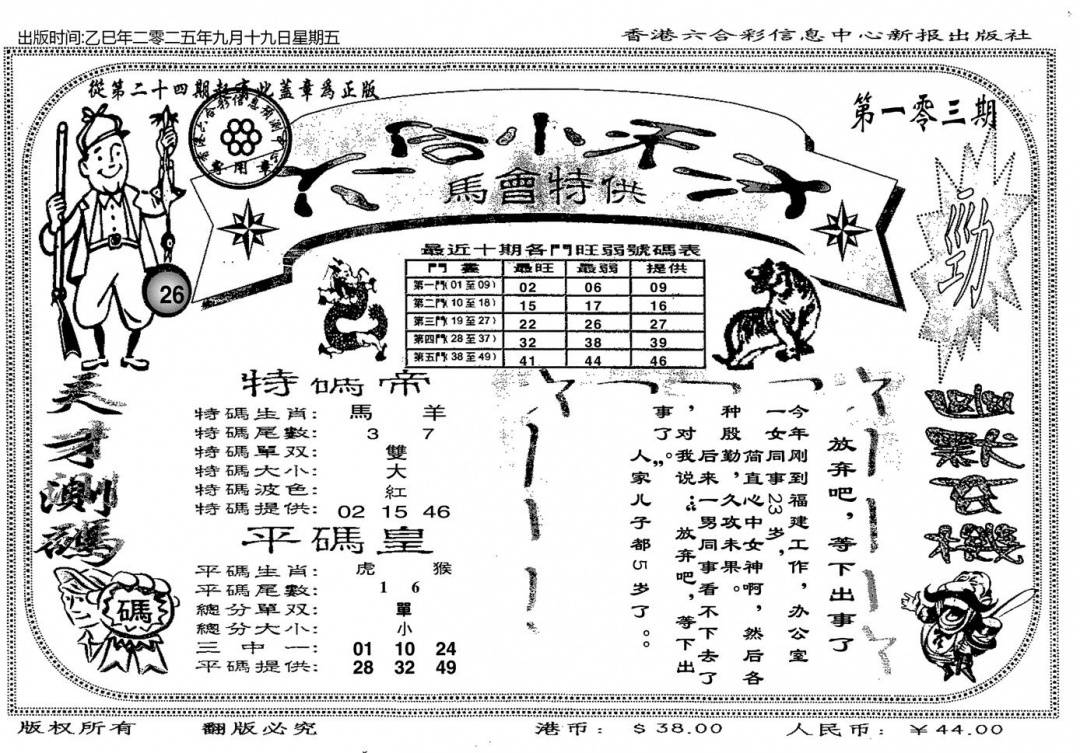 出版时间:乙巳年二零二五年九月十九日星期五
香港六合彩信息中心新报出版社
從第二十四期起有此蓋章爲正版
專用章
第一零三期
馬會特供
勁
26
最近十期各門旺弱號碼表
門畫 最旺 最弱 提供
第一門(01至09) 02 06 09
第二門(10至18) 15 17 16
第三門(19至27) 22 26 27
第四門(28至37) 32 38 39
第五門(38至49) 41 44 46
天才測碼
特碼帝
特碼生肖: 馬 羊
特碼尾數: 3 7
特碼單双: 雙
特碼大小: 大
特碼波色: 紅
特碼提供: 02 15 46
平碼皇
平碼生肖: 虎 猴
平碼尾數: 1 6
總分單双: 單
總分大小: 小
三中一: 01 10 24
平碼提供: 28 32 49
碼
放弃吧,等下出事了
今年刚到福建工作,办公室
一女同事23岁,
简直心中女神啊,然后各
种殷勤,久攻未果。
后来一男同事看不下去了
,对我说:“放弃吧,等下出
事了”。
人家儿子都5岁了。。
玄機
版权所有
翻版必究
港币: $38.00
人民币: ¥44.00